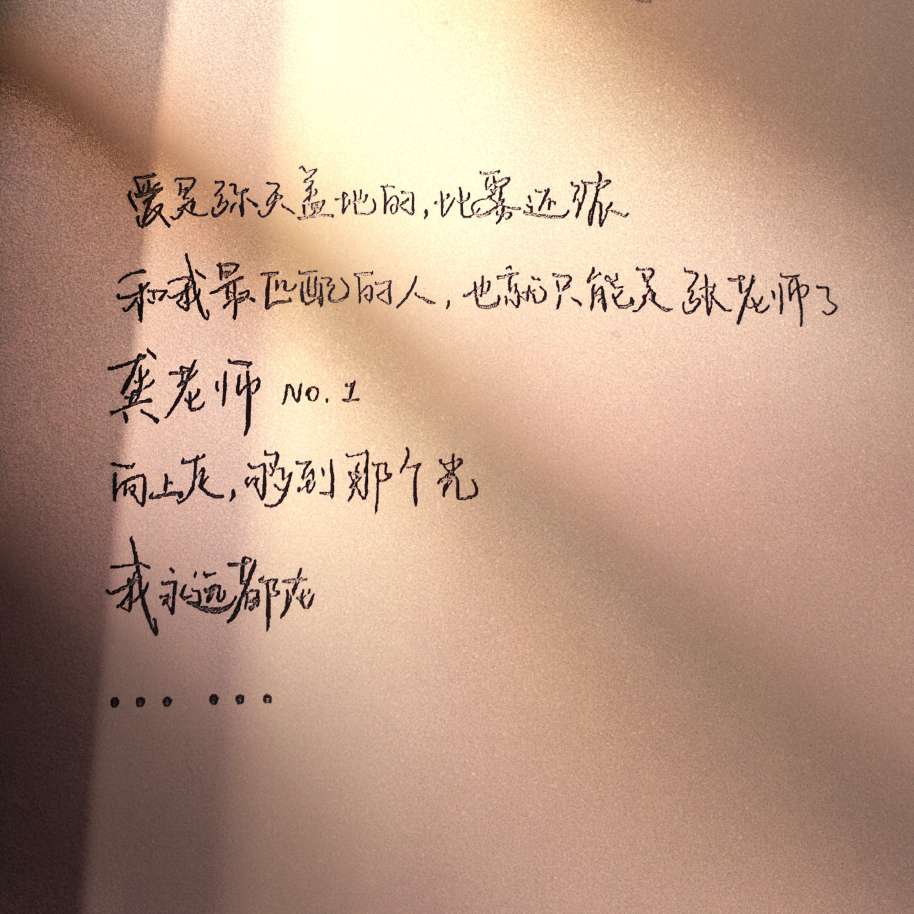 爱是弥天盖地的,比雾还浓
和我最匹配的人,也就只能是张老师了
龚老师 No.1
向上走,够到那个光
我永远都在
… …